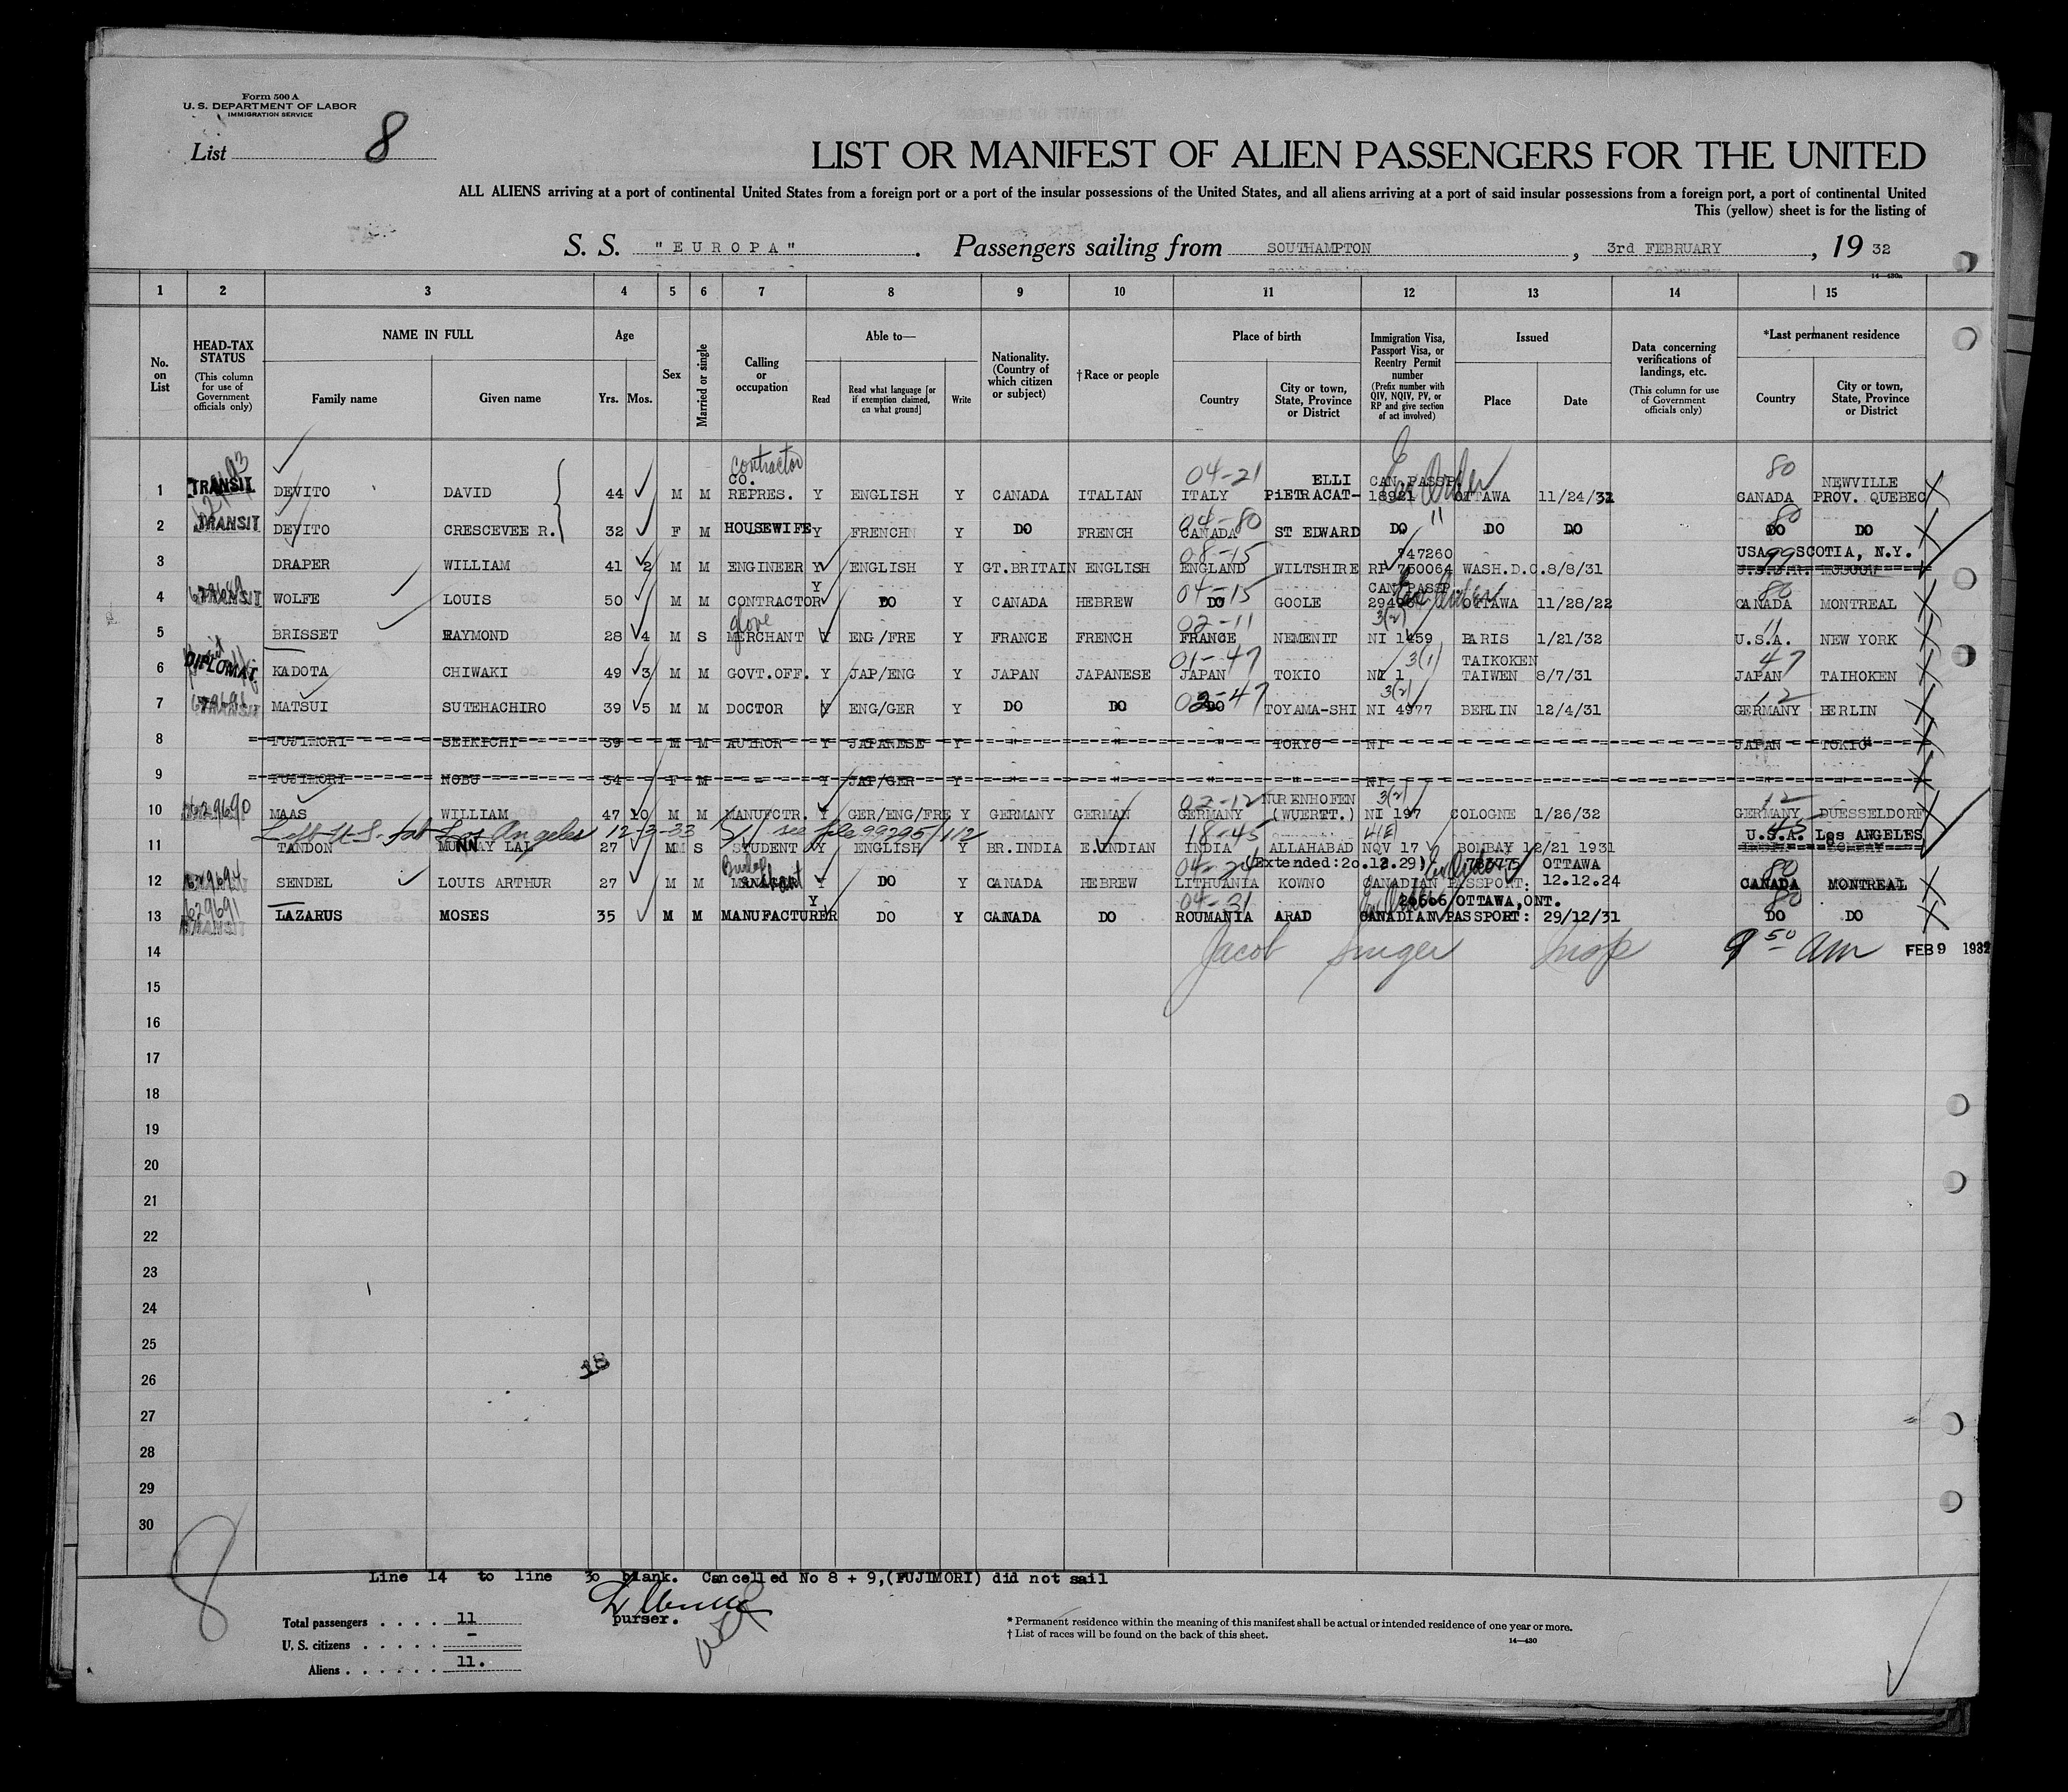 Form 500 A
U. S. DEPARTMENT OF LABOR
IMMIGRATION SERVICE
List 8
LIST OR MANIFEST OF ALIEN PASSENGERS FOR THE UNITED
ALL ALIENS arriving at a port of continental United States from a foreign port or a port of the insular possessions of the United States, and all aliens arriving at a port of said insular possessions from a foreign port, a port of continental United
This (yellow) sheet is for the listing of
S. S. "EUROPA". Passengers sailing from SOUTHAMPTON, 3rd FEBRUARY, 19 32
14—430a
1 2 3 4 5 6 7 8 9 10 11 12 13 14 15
No. on List
HEAD-TAX STATUS (This column for use of Government officials only)
NAME IN FULL Family name Given name
Age Yrs. Mos.
Sex
Married or single
Calling or occupation
Able to— Read Read what language [or if exemption claimed, on what ground] Write
Nationality. (Country of which citizen or subject)
†Race or people
Place of birth Country City or town, State, Province or District
Immigration Visa, Passport Visa, or Reentry Permit number (Prefix number with QIV, NQIV, PV, or RP and give section of act involved)
Issued Place Date
Data concerning verifications of landings, etc. (This column for use of Government officials only)
*Last permanent residence Country City or town, State, Province or District
contractor 04-21 ELLI CAN.PASSP. 80 NEWVILLE
1 TRANSIT DEVITO DAVID 44 M M CO. REPRES. Y ENGLISH Y CANADA ITALIAN ITALY PiETRACAT- 18921 OTTAWA 11/24/31 CANADA PROV. QUEBEC
04-80 80
2 TRANSIT DEVITO CRESCEVEE R. 32 F M HOUSEWIFE Y FRENCH Y DO FRENCH CANADA ST EDWARD DO " DO DO DO DO
08-15 747260 USA 99 SCOTIA, N.Y.
3 DRAPER WILLIAM 41 2 M M ENGINEER Y ENGLISH Y GT.BRITAIN ENGLISH ENGLAND WILTSHIRE RP 750064 WASH.D.C. 8/8/31 U.S.S.R. MOSCOW
04-15 CAN.PASSP. 80
4 TRANSIT WOLFE LOUIS 50 M M CONTRACTOR Y DO Y CANADA HEBREW DO GOOLE OTTAWA 11/28/22 CANADA MONTREAL
glove 02-11 3(2) 11
5 BRISSET RAYMOND 28 4 M S MERCHANT Y ENG/FRE Y FRANCE FRENCH FRANCE NEMENIT NI 1459 PARIS 1/21/32 U.S.A. NEW YORK
01-47 3(1) TAIKOKEN 47
6 DIPLOMAT. KADOTA CHIWAKI 49 3 M M GOVT.OFF. Y JAP/ENG Y JAPAN JAPANESE JAPAN TOKIO NI 1 TAIWEN 8/7/31 JAPAN TAIHOKEN
02-47 3(2) 12
7 TRANSIT MATSUI SUTEHACHIRO 39 5 M M DOCTOR Y ENG/GER Y DO DO DO TOYAMA-SHI NI 4977 BERLIN 12/4/31 GERMANY BERLIN
8 FUJIMORI SEIKICHI 39 M M AUTHOR Y JAPANESE Y " " " TOKYO NI JAPAN TOKIO
9 FUJIMORI NOBU 34 F M - Y JAP/GER Y " " " " NI " "
02-12 NURENHOFEN 3(2) 12
10 629690 MAAS WILLIAM 47 10 M M MANUFCTR. Y GER/ENG/FRE Y GERMANY GERMAN GERMANY (WUERTT.) NI 197 COLOGNE 1/26/32 GERMANY DUESSELDORF
Left U.S. for Los Angeles 12-3-33 see file 99295/112 18-45 4(E) 45 U.S.A. Los ANGELES
11 TANDON MUNNAY LAL 27 M S STUDENT Y ENGLISH Y BR.INDIA E.INDIAN INDIA ALLAHABAD NQV 17 BOMBAY 12/21 1931 INDIA BOMBAY
04-24 (Extended:20.12.29) 783775 OTTAWA 80
12 629694 SENDEL LOUIS ARTHUR 27 M M Y DO Y CANADA HEBREW LITHUANIA KOWNO CANADIAN PASSPORT: 12.12.24 CANADA MONTREAL
04-31 26606 OTTAWA,ONT. 80
13 629691 TRANSIT LAZARUS MOSES 35 M M MANUFACTURER Y DO Y CANADA DO ROUMANIA ARAD CANADIAN PASSPORT: 29/12/31 DO DO
14 Jacob Singer Insp 9 50 am FEB 9 1932
15
16
17
18
19
20
21
22
23
24
25
18
26
27
28
29
30
8
Line 14 to line 30 blank. Cancelled No 8 + 9,(FUJIMORI) did not sail
purser.
Total passengers . . . . 11
U. S. citizens . . . . . -
Aliens . . . . . . 11.
* Permanent residence within the meaning of this manifest shall be actual or intended residence of one year or more.
† List of races will be found on the back of this sheet.
14—430